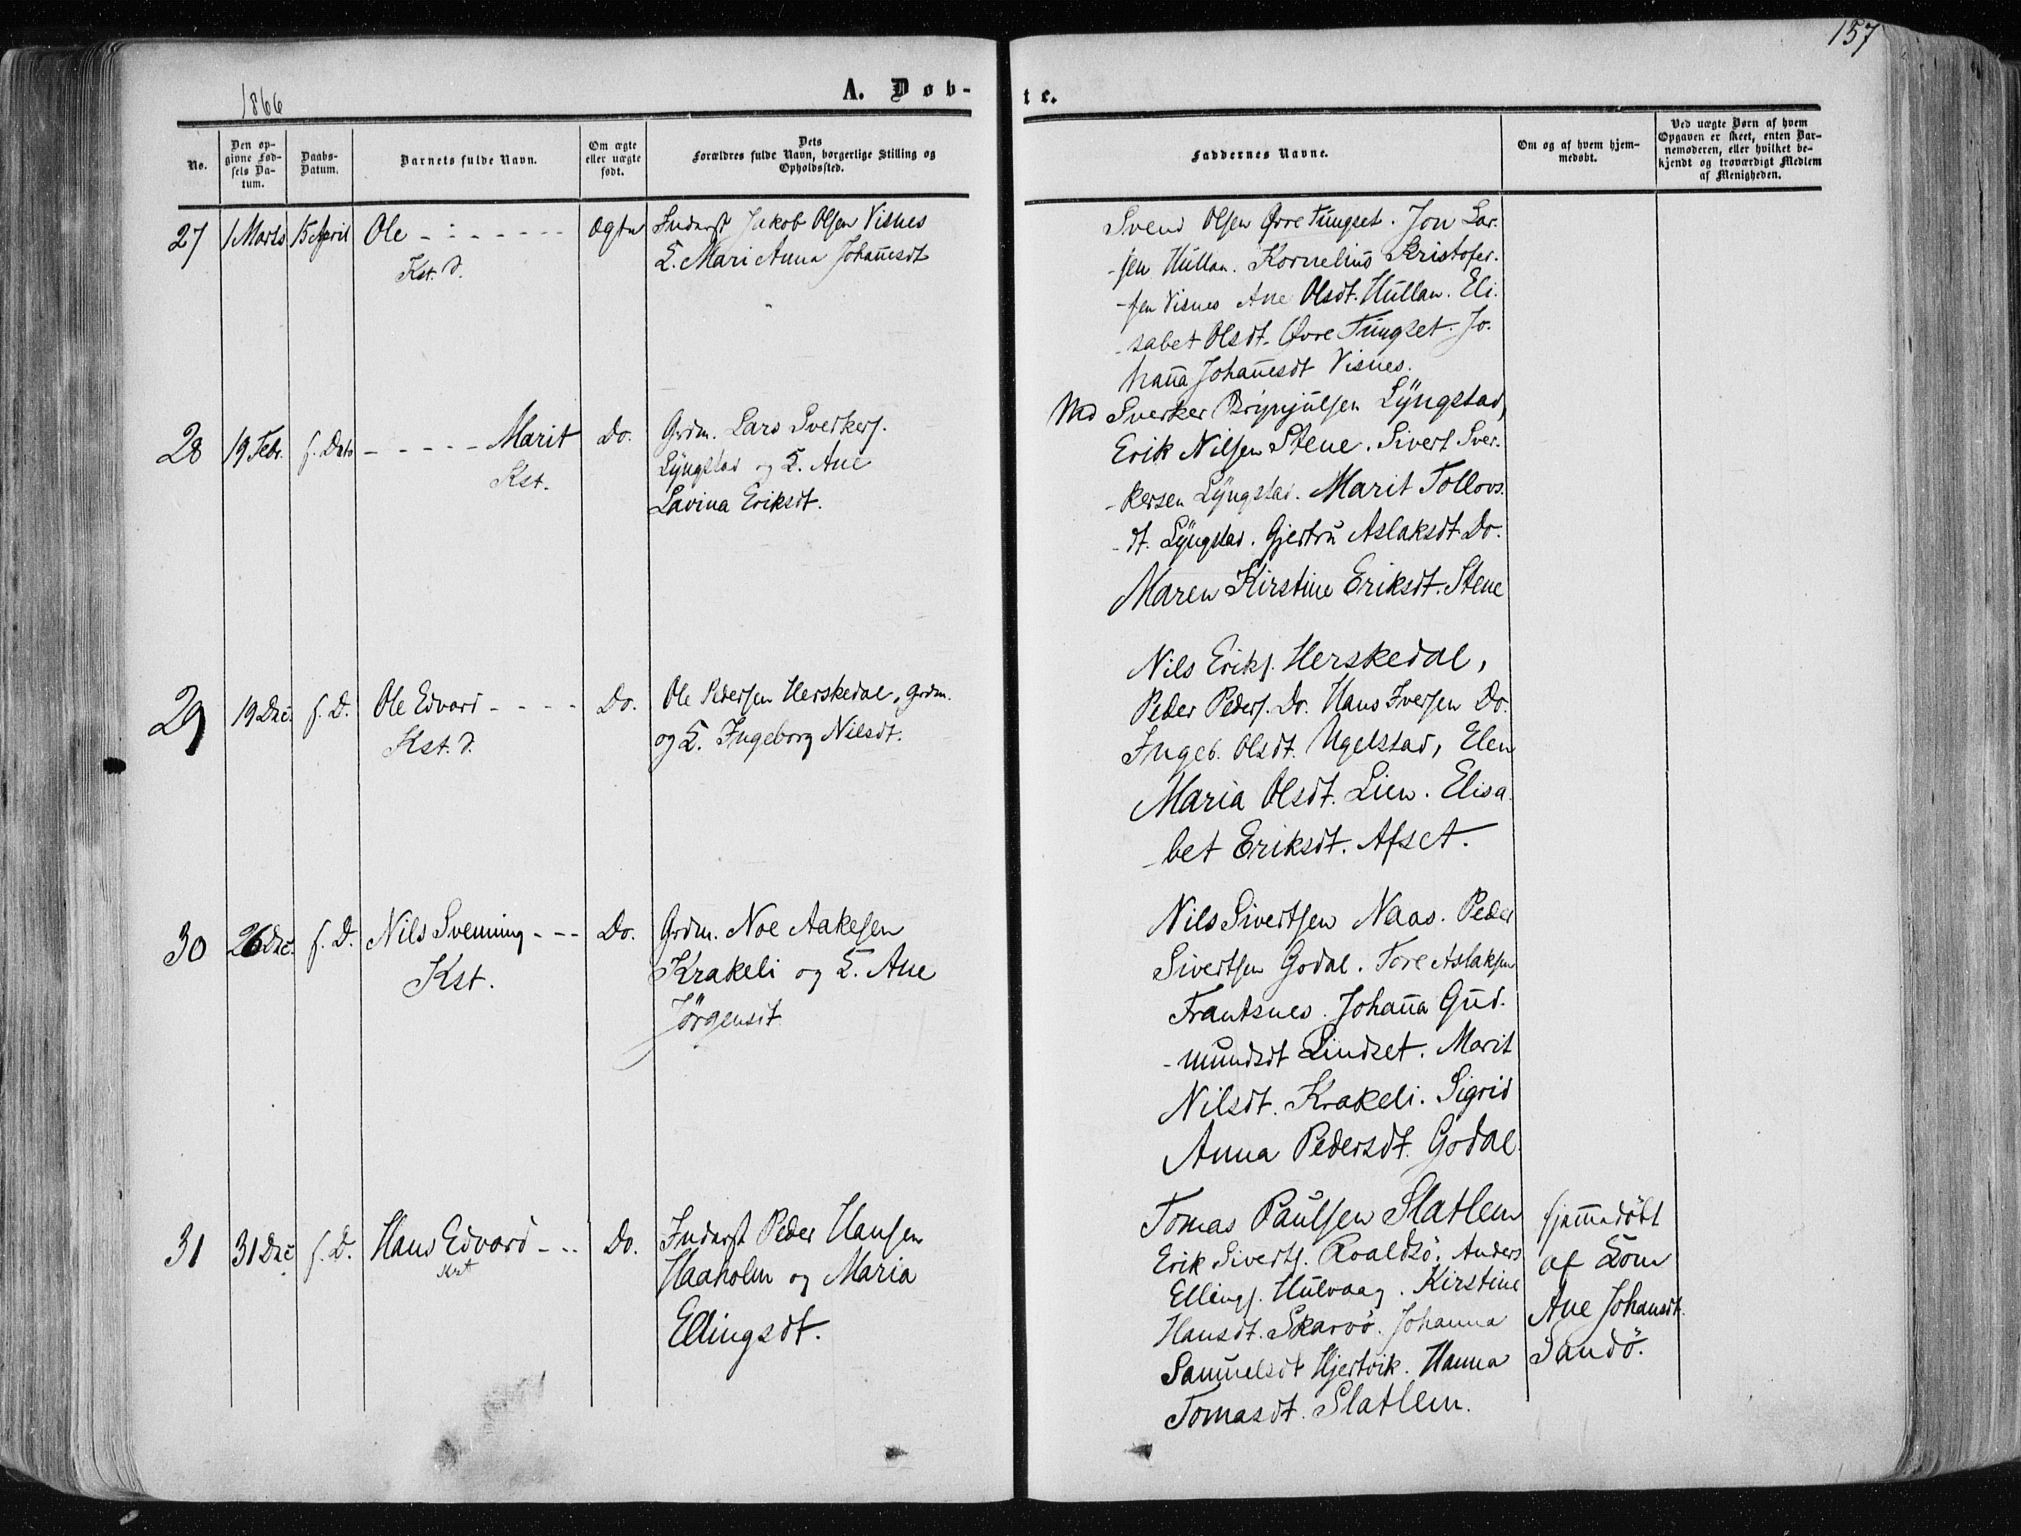 157
1866
A. Døb-
te.
No.
Den op-
givne Fød-
sels Da-
tum.
Daabs-
Datum.
Barnets fulde Navn.
Om ægte
eller uægte
født.
Dets
Forældres fulde Navn, borgerlige Stilling og
Opholdssted.
Faddernes Navne.
Om og af hvem hjem-
medøbt.
Ved uægte Børn af hvem
Opgaven er skeet, enten Bar-
nemoderen, eller hvilket be-
kjendt og troværdigt Medlem
af Menigheden.
27 1 Marts 15 April Ole
Kst. d.
Ægte
Inderst Jakob Olsen Visnes
E. Mari Anna Johañesdt
Svend Olsen Øvre Tungset. Jon Lar-
-sen Hullan. Kornelius Kristofer-
-sen Visnes Ane Olsdt. Hullan. Eli-
-sabet Olsdt. Øvre Tungset. Jo-
haña Johañesdt Visnes.
28 19 Febr. s. Dato - - - - - Marit
Kst.
Do.
Grdm. Lars Sverkers.
Lÿngstad og E. Ane
Lavina Eriksdt.
Sverker Brynjulsen Lÿngstad,
Erik Nilsen Stene. Sivert Sver-
-kersen Lÿngstad. Marit Tollovs-
-dt. Lÿngstad. Gjertru Aslaksdt Do.
Maren Kirstine Eriksdt. Stene
29 19 Dec. s. D. Ole Edvard - - - -
Kst. d.
Do.
Ole Pedersen Herskedal, Grdm.
og E. Ingeborg Nilsdt.
Nils Eriks. Herskedal,
Peder Peders. Do. Hans Iversen Do.
Ingeb. Olsdt. Ugelstad, Elen
Maria Olsdt. Lien. Elisa-
-bet Eriksdt. Afset.
30 26 Dec. s. D. Nils Svenning - - -
Kst.
Do.
Grdm. Noe Aakesen
Krakeli og E. Ane
Jörgensdt
Nils Sivertsen Naas. Peder
Sivertsen Godal. Tore Aslaksen
Frantsnes. Johaña Gud-
-mundsdt Lindset. Marit
Nilsdt. Krakeli. Sigrid
Anna Pedersdt. Godal.
31 31 Dec. s. D. Hans Edvard - - -
Kst
Do.
Inderst Peder Hansen
Haaholm og Maria
Ellingsdt.
Tomas Paulsen Slatlem
Erik Siverts. Roaldsö. Anders
Ellings. Hulvaag. Kirstine
Hansdt. Skarvö. Johanna
Samuelsdt Hjertvik. Hanna
Tomasdt. Slatlem.
hjem̃edöbt
af
Ane Johansdt.
Sandö.